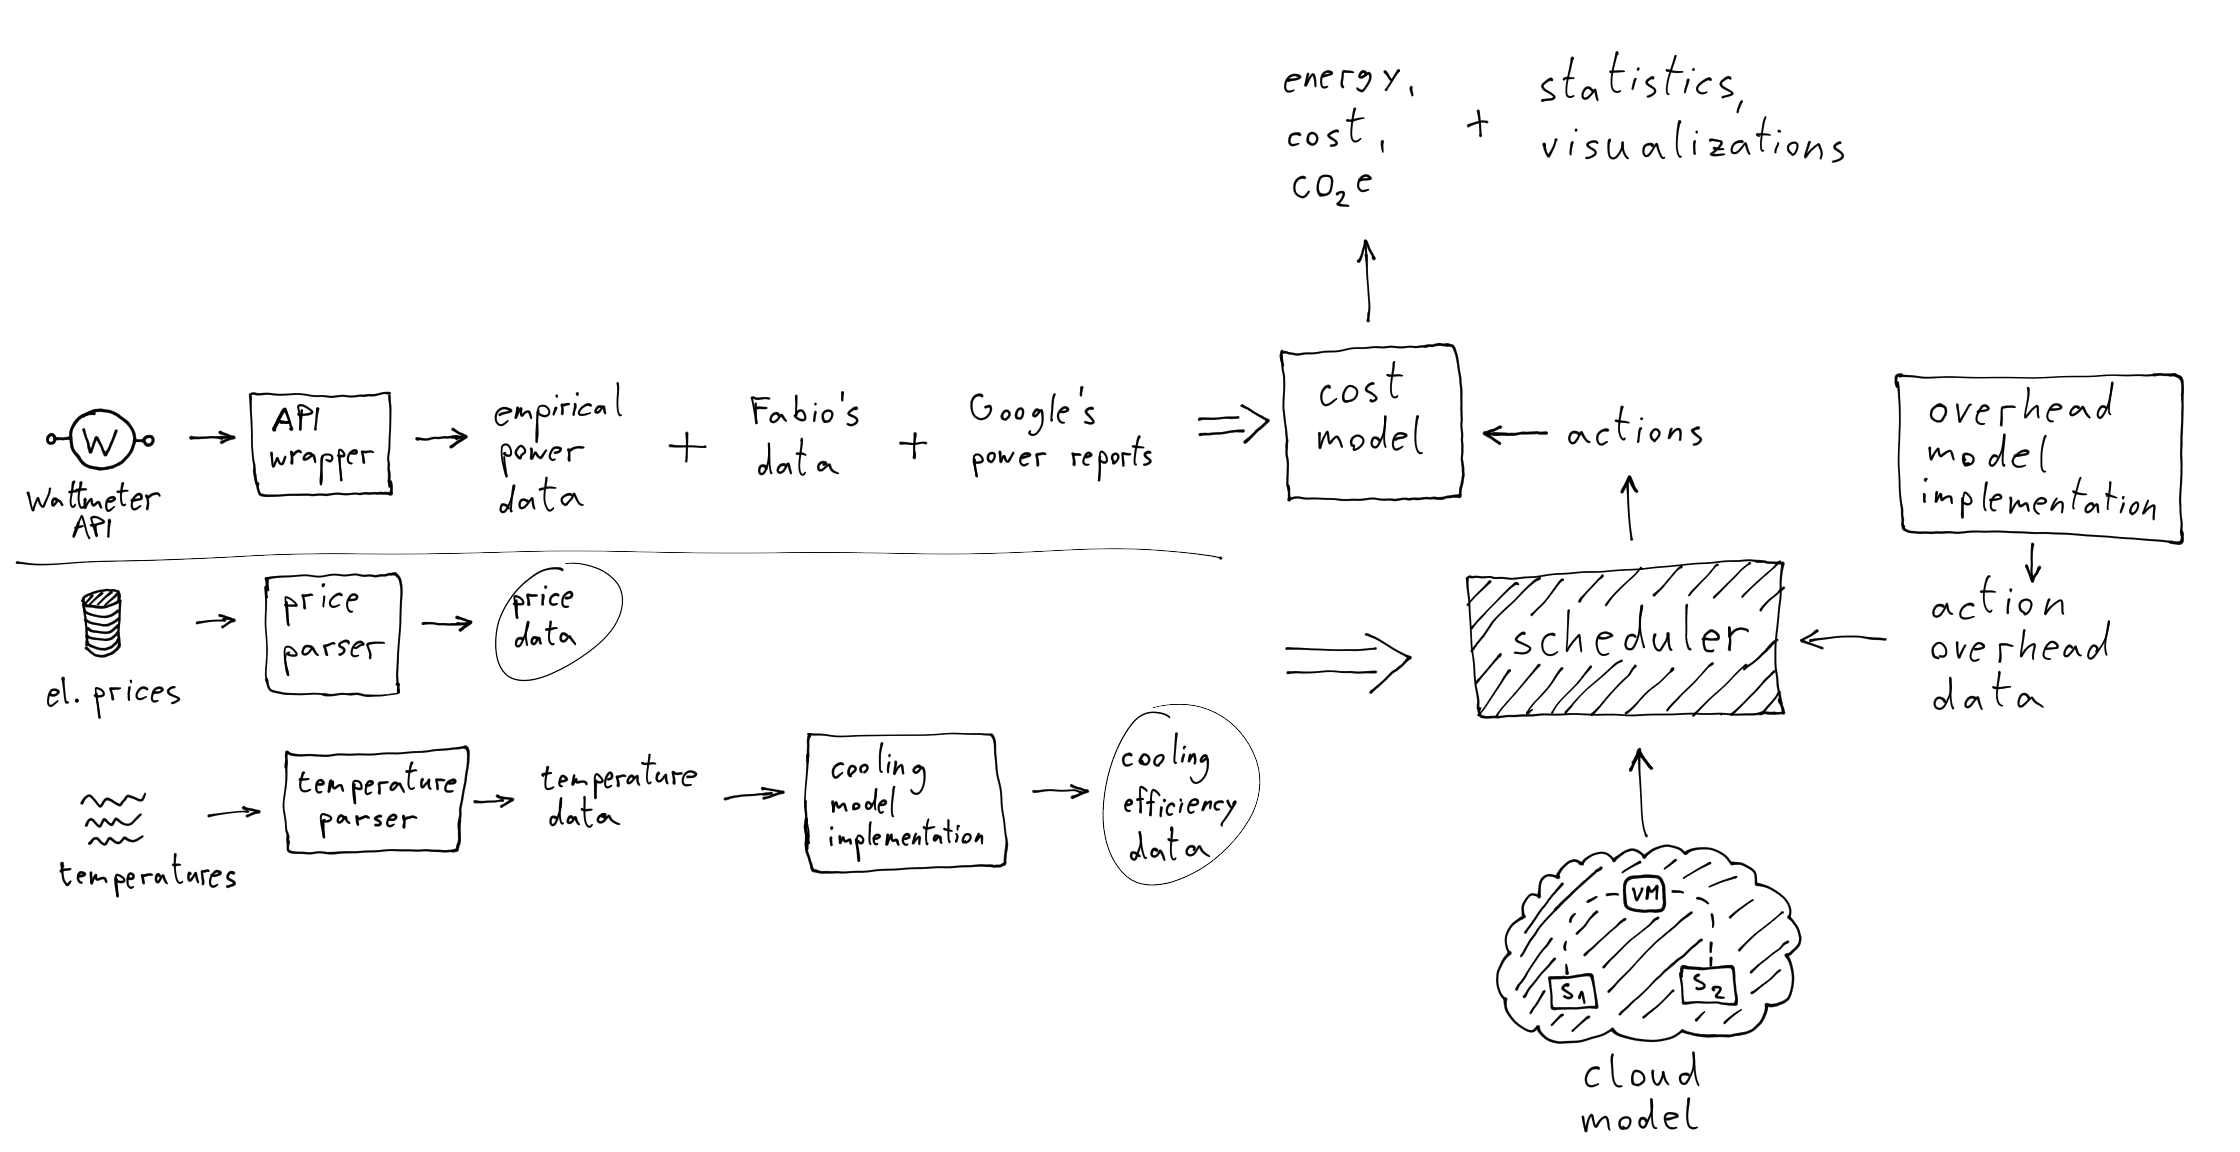 energy,
cost,
CO₂e
+
statistics,
visualizations
W
Wattmeter
API
API
wrapper
empirical
power
data
+
Fabio's
data
+
Google's
power reports
cost
model
actions
overhead
model
implementation
el. prices
price
parser
price
data
scheduler
action
overhead
data
temperatures
temperature
parser
temperature
data
cooling
model
implementation
cooling
efficiency
data
VM
S1
S2
cloud
model